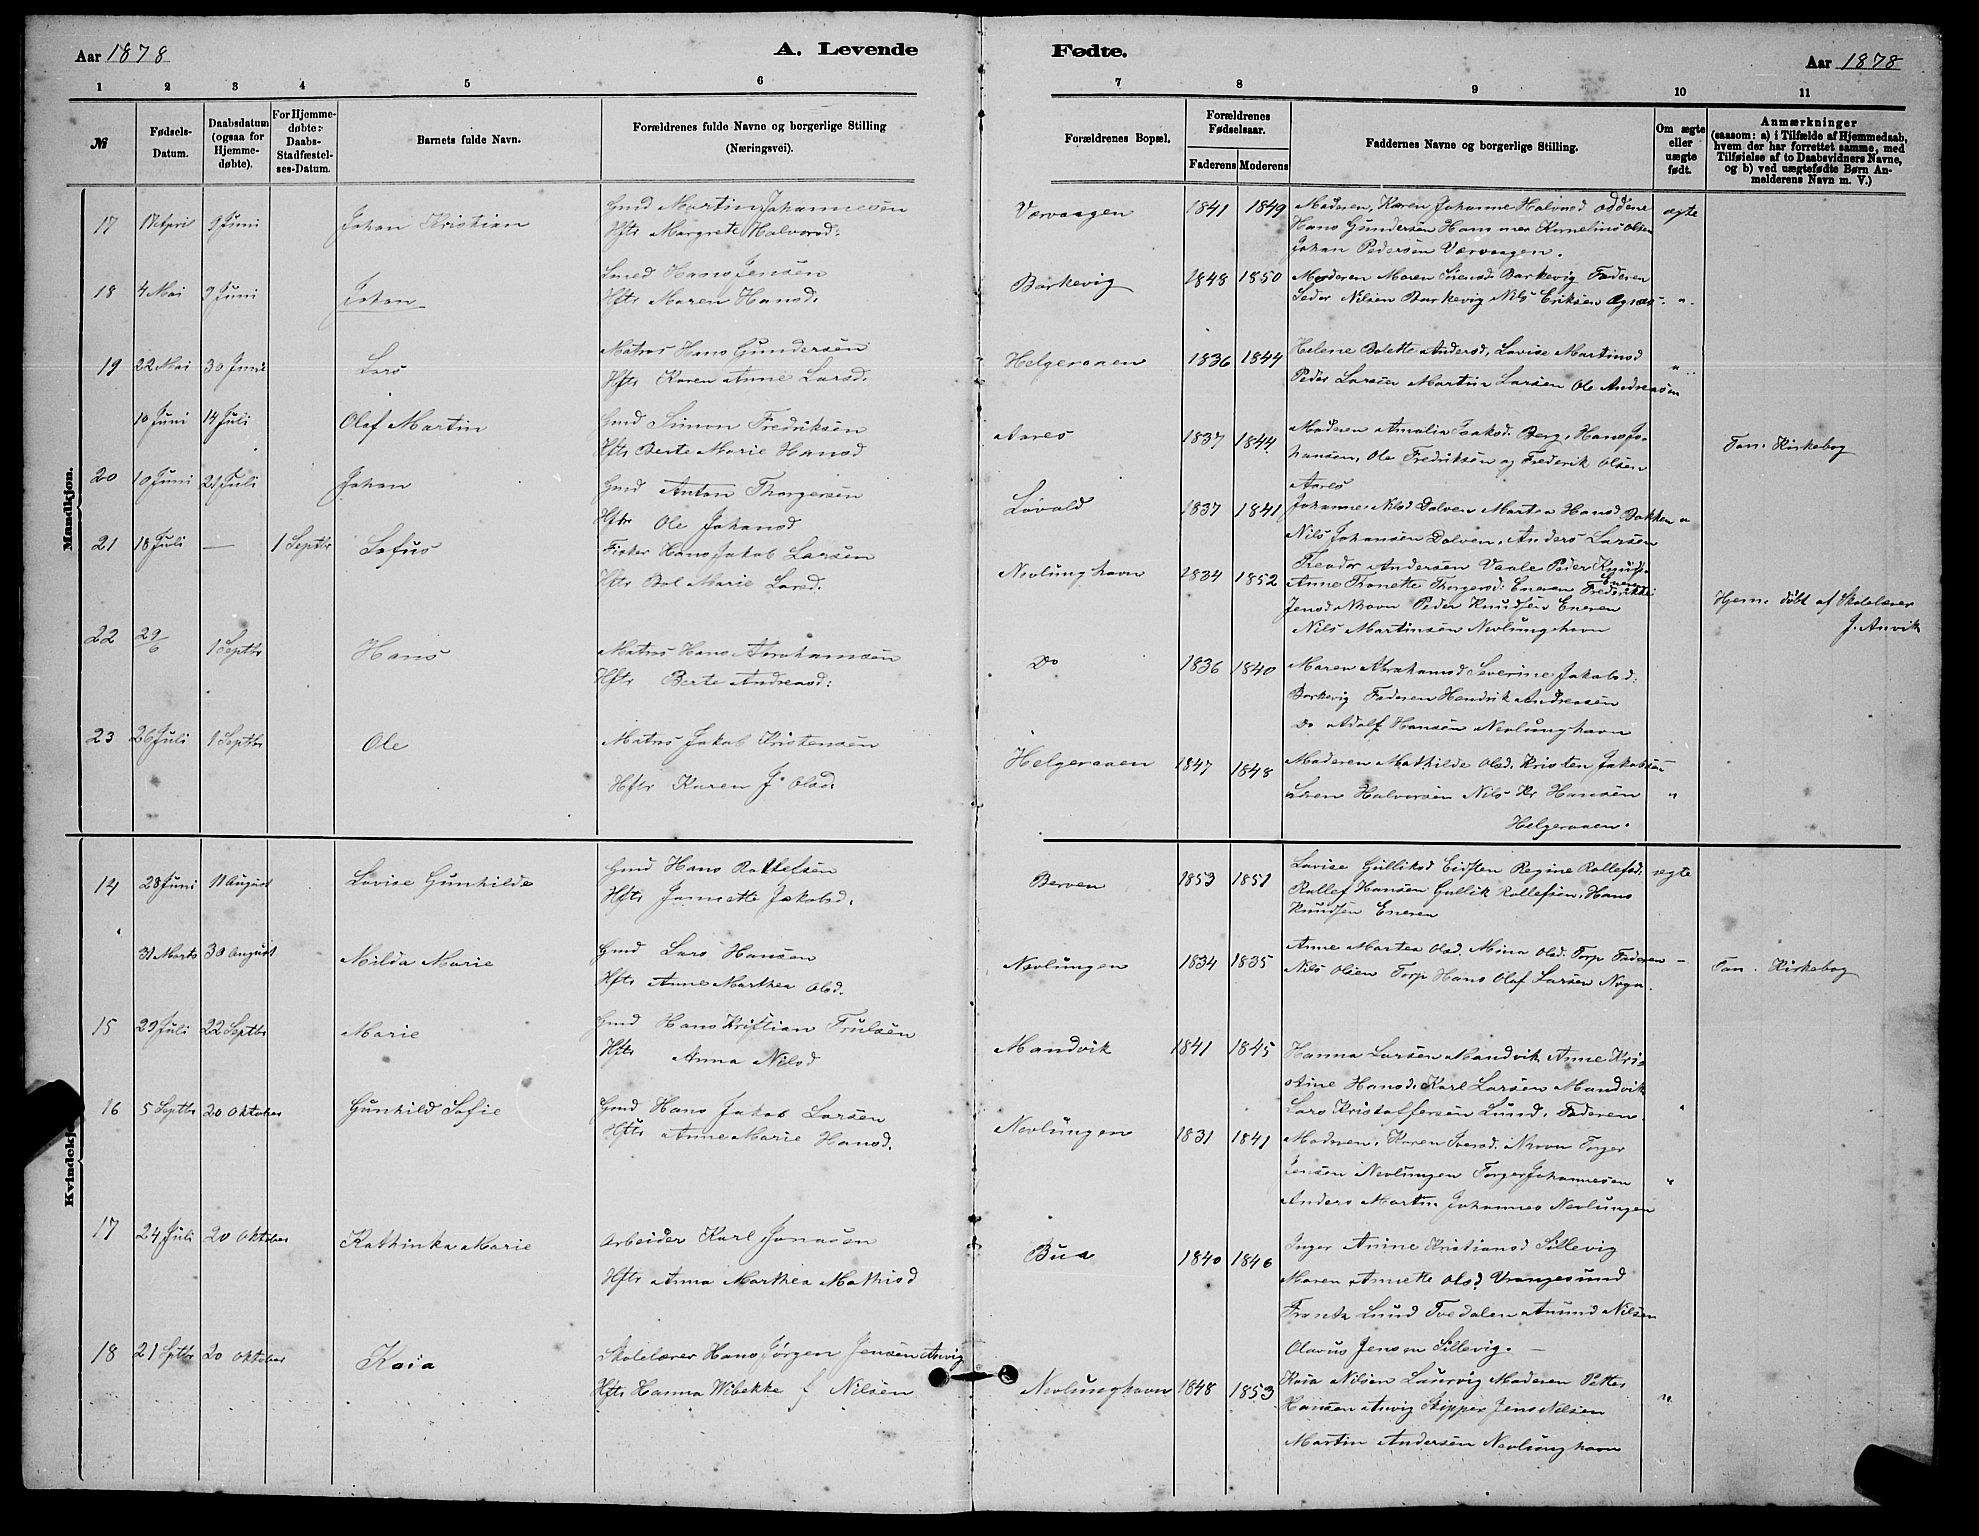 Aar 1878
A. Levende
Fødte.
Aar 1878
1 2 3 4 5 6 7 8 9 10 11
№
Fødsels-Datum.
Daabsdatum (ogsaa for Hjemmedøbte).
For Hjemmedøbte: Daabs-Stadfæstelses-Datum.
Barnets fulde Navn.
Forældrenes fulde Navne og borgerlige Stilling (Næringsvei).
Forældrenes Bopæl.
Forældrenes Fødselsaar.
Faderens Moderens
Faddernes Navne og borgerlige Stilling.
Om ægte eller uægte født.
Anmærkninger
(saasom: a) i Tilfælde af Hjemmedaab,
hvem der har forrettet samme, med
Tilføielse af to Daabsvidners Navne,
og b) ved uægtefødte Børn An-
melderens Navn m. V.)
Mandkjøn.
17 17 April 9 Juni Johan Kristian Gmd Martin Johannesen
Hftr Margrete Halvorsd:
Værvaagen 1841 1849 Moderen, Karen Johanne Halvorsd Oddene ægte
Hans Gundersen Hummer Kornelius Olsen
Johan Pedersen Værvaagen.
18 4 Mai 9 Juni Johan Smed Hans Jensen
Hftr Maren Hansd.
Barkevig 1848 1850 Moderen Maren Sørensd Barkevig Faderen
Peder Nilsen Barkevig Nils Eriksen Agnæs "
19 22 Mai 30 Juni Lars Matros Hans Gundersen
Hftr Karen Anne Larsd.
Helgeraaen 1836 1844 Helene Bolette Andersd, Lovise Martinsd "
Peder Larsen Martin Larsen Ole Andreasen
10 Juni 14 Juli Olaf Martin Gmd Simon Fredriksen
Hftr Berte Marie Hansd
Aarøs 1837 1844 Moderen Amalia Isaksd. Berg, Hans Jo-
hansen, Ole Fredriksen og Frederik Olsen
Aarøs
Tan. Kirkebog
20 10 Juni 21 Juli Johan Gmd Anton Thorgersen
Hftr Ole Johansd
Løvald 1837 1841 Johanne Nilsd Dolven Martea Hansd Bakken "
Nils Johansen Dolven, Anders Larsen
21 18 Juli — 1 Septbr Sofus Fisker Hans Jakob Larsen
Hftr Bol Marie Larsd.
Nevlunghavn 1834 1852 Anne Tronette Thorgersd: Eneren Fredrikke
Jensd Navn Peder Knudsen Eneren
Nils Martinsen Nevlunghavn
Hjem. døbt af Skolelærer
J. Anvik
22 29/6 1 Septbr Hans Matros Hans Abrahamsen
Hftr Berte Andreasd:
Do 1836 1840 Maren Abrahamsd Severine Jakobsd:
Barkevig Faderen Hendrik Andreasen
Do Adolf Hansen Nevlunghavn
23 26 Juli 1 Septbr Ole Matros Jakob Kristensen
Hftr Karen J. Olsd.
Helgeraaen 1847 1848 Moderen Mathilde Olsd. Kristen Jakobsen
Søren Halvorsen Nils Kr Hansen "
Helgeraaen.
Kvindekjøn.
14 28 Juni 11 August Lovise Gunhilde Gmd Hans Rollefsen
Hftr Jannette Jakobsd.
Berven 1853 1851 Lovise Gulliksd Eidsten Regine Rollefsd. ægte
Rollef Hansen Gullik Rollefsen, Hans
Knudsen Eneren
31 Marts 30 August Milda Marie Gmd Lars Hansen
Hftr Anne Marthea Olsd.
Nevlungen 1834 1835 Anne Martea Olsd. Mina Olsd. Torp Faderen —
Nils Olsen Torp Hans Olaf Larsen
Tan. Kirkebog
15 29 Juli 22 Septbr Marie Gmd Hans Kristian Trulsen
Hftr Anna Nilsd
Mandvik 1841 1845 Hanna Larsen Mandvik Anne Kris-
tine Hansd. Karl Larsen Mandvik
Lars Kristoffersen Lund, Faderen "
16 5 Septbr 20 Oktober Gunhild Sofie Gmd Hans Jakob Larsen
Hftr Anne Marie Hansd.
Nevlungen 1831 1841 Moderen, Karen Iversd. Navn Torger
Jensen Nevlungen Torger Johannesen "
Anders Martin Johannes Nevlungen
17 24 Juli 20 Oktober Kathinka Marie Arbeider Karl Jonasen
Hftr Anna Marthea Mathisd
Bua 1840 1846 Inger Anne Kristiansd Sillevig
Maren Annette Olsd Vrangesund
Frantz Lund Tvedalen Amund Nilsen
Olavus Jensen Sillevig. —
18 21 Septbr 20 Oktober Kaia Skolelærer Hans Jørgen Jensen Anvig
Hftr Hanna Wibekke f. Nilsen
Nevlunghavn 1848 1853 Kaia Nilsen Laurvig Moderen Petter "
Hansen Anvig Skipper Jens Nilsen
Martin Andersen Nevlunghavn